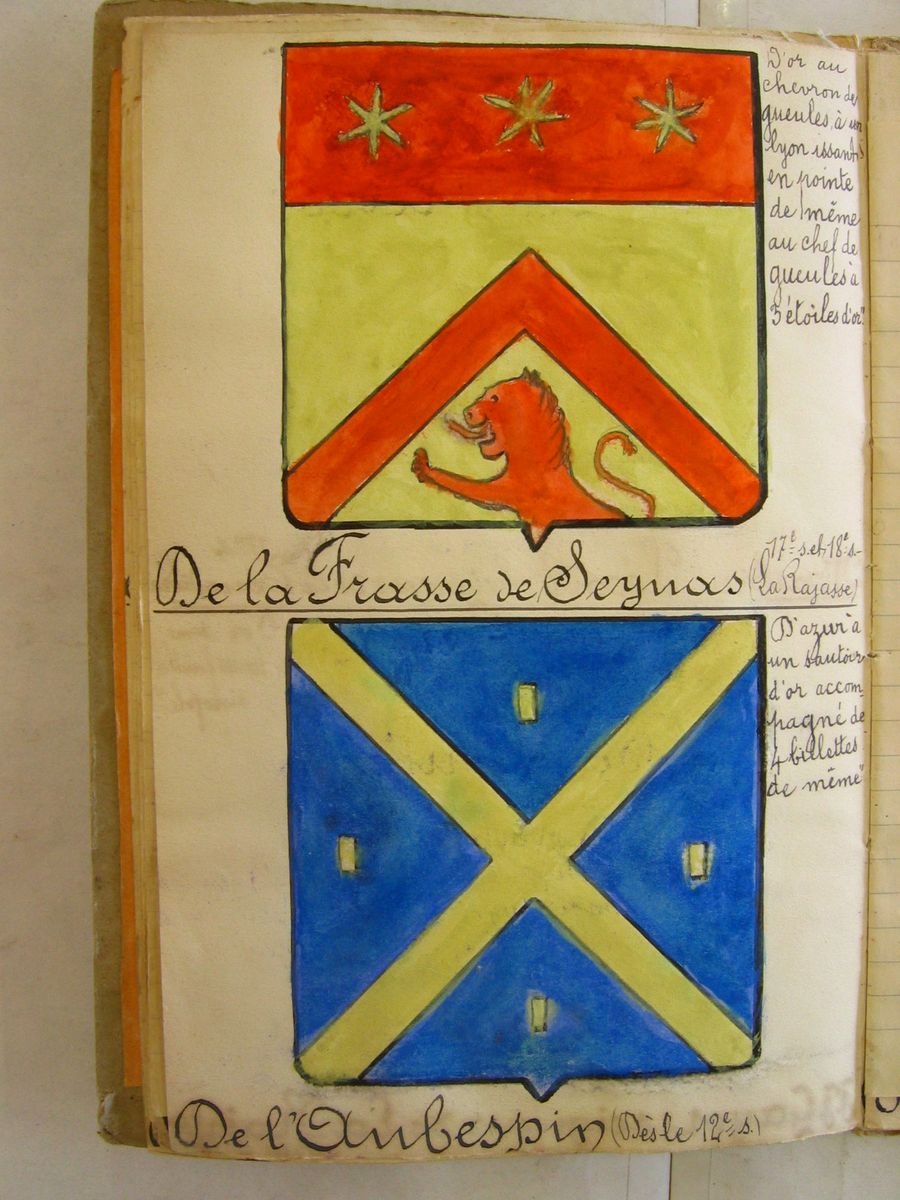 D'or au
chevron de
gueules, à un
lyon issant
en pointe
de même
au chef de
gueules à
3 étoiles d'or"
De la Frasse de Seynas
17e s. et 18e s.
(La Rajasse)
D'azur à
un sautoir
d'or accom-
pagné de
4 billettes
de même"
De l'Aubespin (Dès le 12e s.)